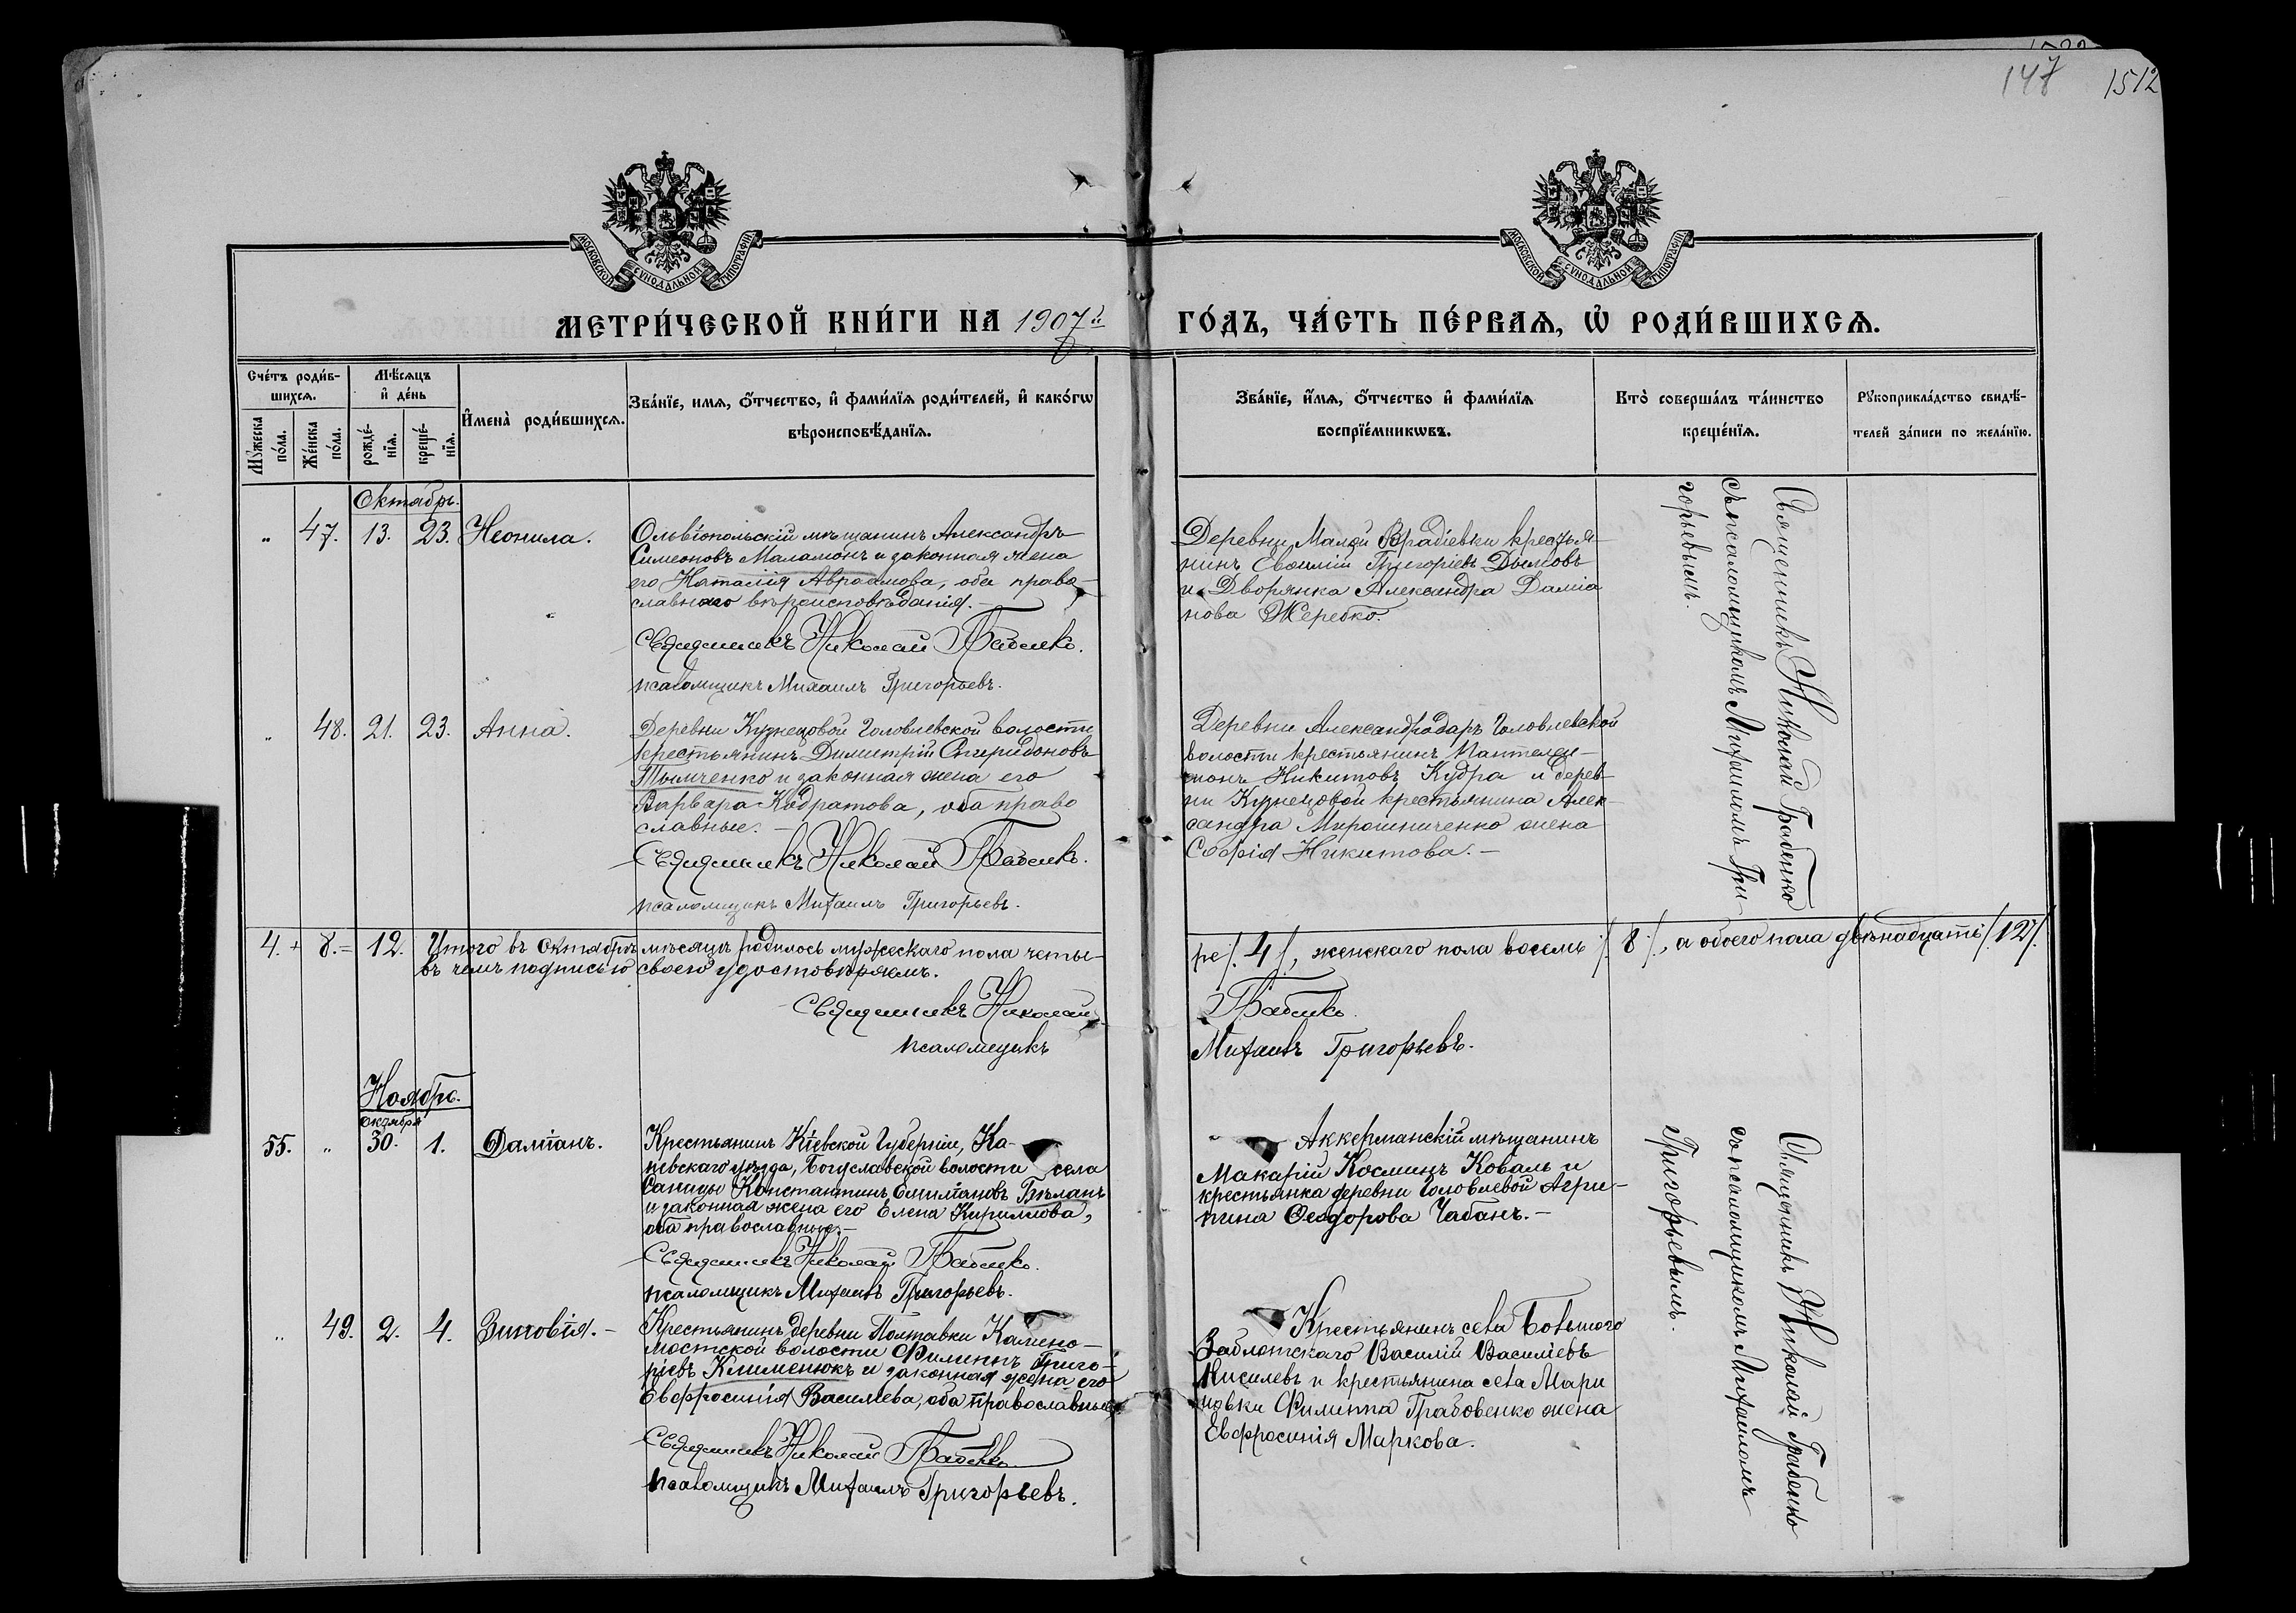 147 1512
МОСКОВСКОЙ СѴНОДАЛЬНОЙ ТИПОГРАФІИ
МОСКОВСКОЙ СѴНОДАЛЬНОЙ ТИПОГРАФІИ
МЕТРИ́ЧЕСКОЙ КНИ́ГИ НА 1907й ГО́ДЪ, ЧА́СТЬ ПЕ́РВАѦ, Ѡ РОДИ́ВШИХСѦ.
Сче́тъ роди́в-
шихсѧ.
Мꙋжеска
по́ла.
Же́нска
по́ла.
Мѣ́сѧцъ
и де́нь
рожде́-
нїѧ.
креще́-
нїѧ.
Имена̀ роди́вшихсѧ.
Зва́нїе, имѧ, ѻ́тчество, и фами́лїѧ роди́телей, и како́гѡ
вѣроисповѣ́данїѧ.
Зва́нїе, и́мѧ, ѻ́тчество и фами́лїѧ
воспрїе́мникѡвъ.
Кто̀ соверша́лъ та́инство
креще́нїѧ.
Рꙋкоприкла́дство свидѣ́-
телей за́писи по жела́нїю.
Октябрь.
„ 47. 13. 23. Неонила.
Ольвіопольскій мѣщанинъ Александръ
Симеоновъ Маламонъ и законная жена
его Наталія Авраамова, оба право-
славнаго вѣроисповѣданія.-
Священникъ Николай Грабенко.
псаломщикъ Михаилъ Григорьевъ.
Деревни Малой Врадіевки кресть-
нинъ Евѳимій Григоріевъ Дымовъ
и Дворянка Александра Даміа
нова Жеребко.
Священникъ Николай Грабенко
съ псаломщикомъ Михаиломъ Гри-
горьевымъ.
„ 48. 21. 23. Анна.
Деревни Кузнецовой Головлевской волости
крестьянинъ Димитрій Спиридоновъ
Тымченко и законная жена его
Варвара Кодратова, оба право
славные.-
Священникъ Николай Грабенко.
псаломщикъ Михаилъ Григорьевъ.
Деревни Александродаръ Головлевской
волости крестьянинъ Пантелеи-
монъ Никитовъ Кудра и дерев-
ни Кузнецовой крестьянина Алек-
сандра Мирошниченко жена
Софія Никитова.-
4. + 8. = 12. Итого въ Октябрѣ мѣсяцѣ родилось мужескаго пола четы-
ре /. 4 /., женскаго пола восемь /. 8 /., а обоего пола двѣнадцать /. 12 /.
въ чемъ подписью своею удостовѣряемъ.
Священникъ Николай Грабенко.
псаломщикъ Михаилъ Григорьевъ.
Ноябрь.
октября
55. „ 30. 1. Даміанъ.
Крестьянинъ Кіевской Губерніи, Ка-
невскаго уѣзда, Богуславской волости села
Саниды Константинъ Емиліановъ Бѣланъ
и законная жена его Елена Кириллова,
оба православные.-
Священникъ Николай Грабенко.
псаломщикъ Михаилъ Григорьевъ.
Аккерманскій мѣщанинъ
Макарій Косминъ Коваль и
крестьянка деревни Головлевой Агри-
пина Ѳеодорова Чабанъ.-
Священникъ Николай Грабенко
съ псаломщикомъ Михаиломъ
Григорьевымъ.
„ 49. 2. 4. Зиновія.-
Крестьянинъ деревни Полтавки Камено-
мостской волости Филиппъ Григо-
ріевъ Клименюкъ и законная жена его
Евфросинія Василіева, оба православные.
Священникъ Николай Грабенко
псаломщикъ Михаилъ Григорьевъ.
Крестьянинъ села Большого
Заблотскаго Василій Василіевъ
Киселевъ и крестьянина села Мари
новки Филиппа Грабовенко жена
Евфросинія Маркова.